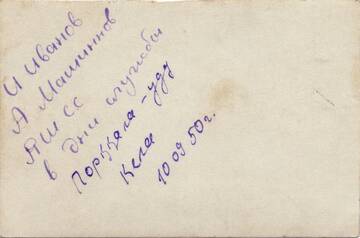 И Иванов
А Машиннов
АШ СС
в дни службы
Порккала-удд
Кела
10 09 50г.